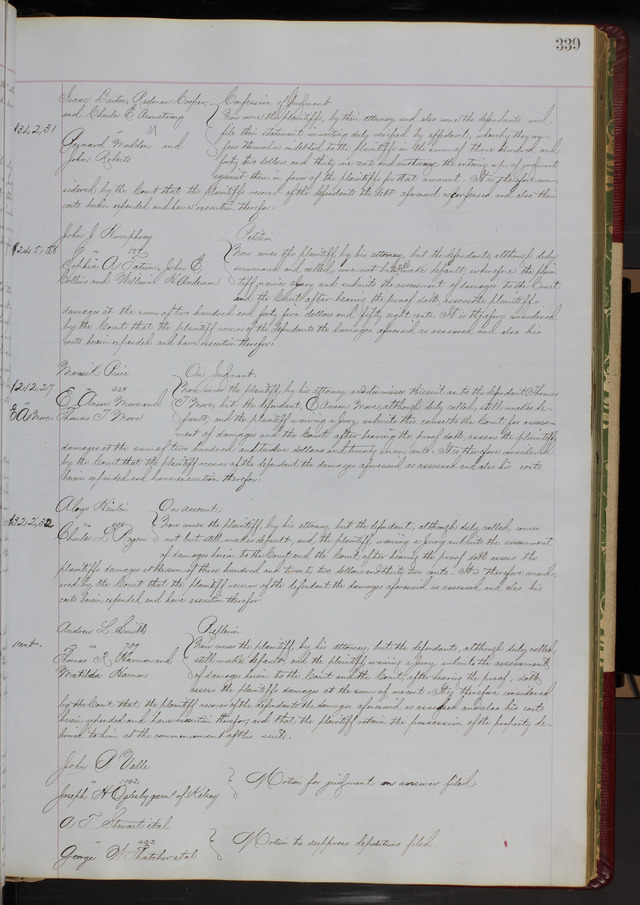 339
Isaac Barton, Redman Cooper, Confession of Judgment
and Charles E Armstrong Now come the plaintiffs, by their attorney and also come the defendants and
$342,31 vs M file their statement in writing duly verified by affidavit, whereby they con-
Reynard Madden and fess themselves indebted to the plaintiffs in the sum of three hundred and
John Roberts forty two dollars and thirty one cents and authorize the entering up of judgment
against them in favor of the plaintiffs for that amount. It is therefore con-
sidered by the Court that the plaintiffs recover of the defendants the debt aforesaid so confessed and also their
costs herein expended and have execution therefor.
John J. Humphrey Petition
$245,58 vs Now comes the plaintiff, by his attorney, but the defendants, although duly
Sophia A. Tatum, John E summoned and called, come not but make default, wherefore the plain-
Collins and William H Anderson tiff waives a jury and submits the assessment of damages to the Court
and the Court after hearing the proof doth assess the plaintiff's
damages at the sum of two hundred and forty five dollars and fifty eight cents. It is therefore considered
by the Court that the plaintiff recover of the defendants the damages aforesaid as assessed and also his
costs herein expended and have execution therefor.
Price On Judgment.
$212,27 vs 528 Now comes the plaintiff by his attorney and dismisses this suit as to the defendant Thomas
E Anson More and T More, but the defendant E Anson More, although duly called, still makes de-
E A More Thomas T More fault, and the plaintiff waiving a jury, submits this cause to the Court for assess-
ment of damages and the Court after hearing the proof doth assess the plaintiff's
damages at the sum of two hundred and twelve dollars and twenty seven cents. It is therefore considered
by the Court that the plaintiff recover of the defendant the damages aforesaid as assessed and also his costs
herein expended and have execution therefor.
Aloys On account.
$322,32 vs Now comes the plaintiff, by his attorney, but the defendant, although duly called, comes
Charles L Rogers not but still makes default and the plaintiff waiving a jury submits the assessment
of damages herein, to the Court and the Court after hearing the proof doth assess the
plaintiff's damages at the sum of three hundred and twenty two dollars and thirty two cents. It is therefore consid-
ered by the Court that the plaintiff recover of the defendant the damages aforesaid as assessed and also his
costs herein expended and have execution therefor.
Andrew L. Smith Replevin
1 cent. vs 759 Now comes the plaintiff, by his attorney, but the defendants, although duly called,
Thomas R Harmon and still make default and the plaintiff waiving a jury, submits the assessment
Matilda Harmon of damages herein to the Court and the Court, after hearing the proof, doth
assess the plaintiff's damages at the sum of one cent. It is therefore considered
by the Court that the plaintiff recover of the defendants the damages aforesaid as assessed and also his costs
herein expended and have execution therefor, and that the plaintiff retain the possession of the property de-
livered to him at the commencement of this suit.
John P Valle
vs 1702 Motion for judgment on answer filed
Joseph H garn't of Kelsey
A. T. Stewart et al
vs 263 Motion to suppress depositions filed.
George W Thatcher et al